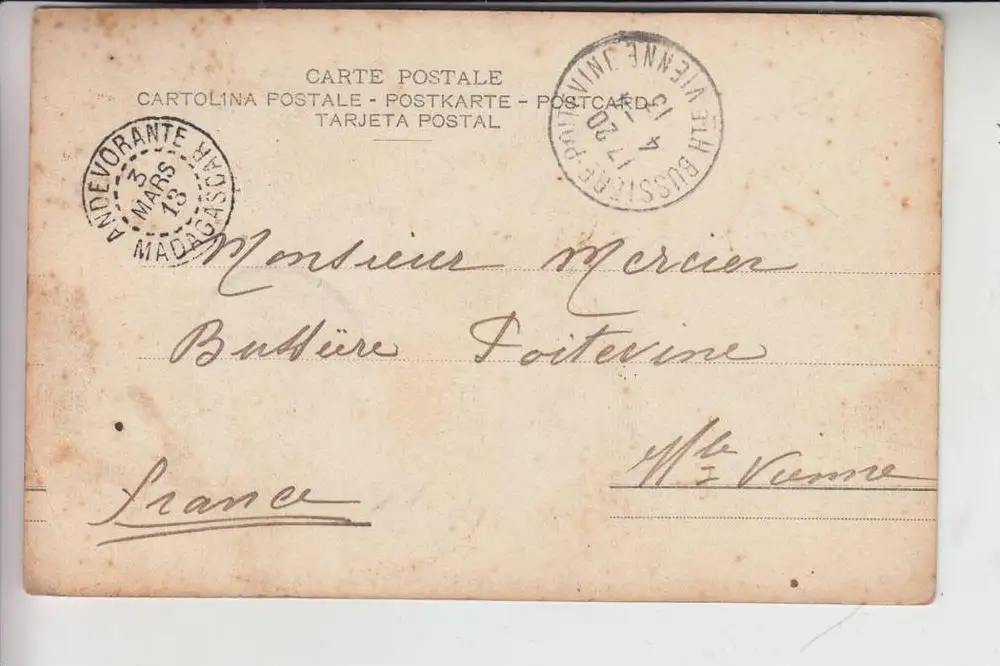 CARTE POSTALE
CARTOLINA POSTALE - POSTKARTE - POSTCARD
TARJETA POSTAL
ANDEVORANTE
3
MARS
13
MADAGASCAR
BUSSIERE-POITEVINE
17 20
4
13
HTE VIENNE
Monsieur Mercier
Bussière Poitevine
Hte Vienne
France